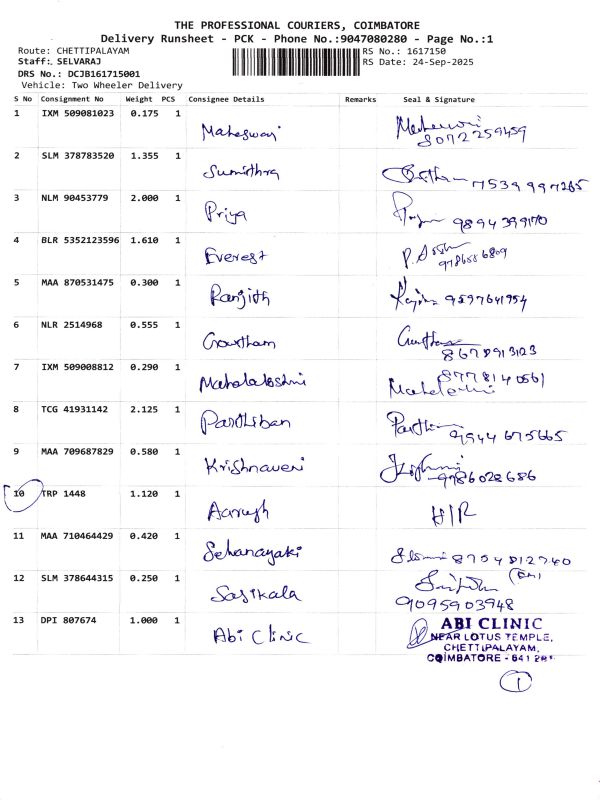 THE PROFESSIONAL COURIERS, COIMBATORE
Delivery Runsheet - PCK - Phone No.:9047080280 - Page No.:1
Route: CHETTIPALAYAM RS No.: 1617150
Staff: SELVARAJ RS Date: 24-Sep-2025
DRS No.: DCJB161715001
Vehicle: Two Wheeler Delivery
S No Consignment No Weight PCS Consignee Details Remarks Seal & Signature
1 IXM 509081023 0.175 1
Maheswari
8072259459
2 SLM 378783520 1.355 1
Sumithra 7539997265
3 NLM 90453779 2.000 1
Priya 9894399170
4 BLR 5352123596 1.610 1
Everest
9786586809
5 MAA 870531475 0.300 1
Ranjith 9597641954
6 NLR 2514968 0.555 1
Gowtham
8678913123
7 IXM 509008812 0.290 1
8778140561
Mahalakshmi
8 TCG 41931142 2.125 1
Parthiban
9944675665
9 MAA 709687829 0.580 1
Krishnaveni 9786028686
10 TRP 1448 1.120 1
Aarush H/R
11 MAA 710464429 0.420 1
Sehanayaki 8754812740
12 SLM 378644315 0.250 1
Sasikala
9095903948
13 DPI 807674 1.000 1
Abi Clinic
ABI CLINIC
NEAR LOTUS TEMPLE,
CHETTIPALAYAM,
COIMBATORE - 641
1